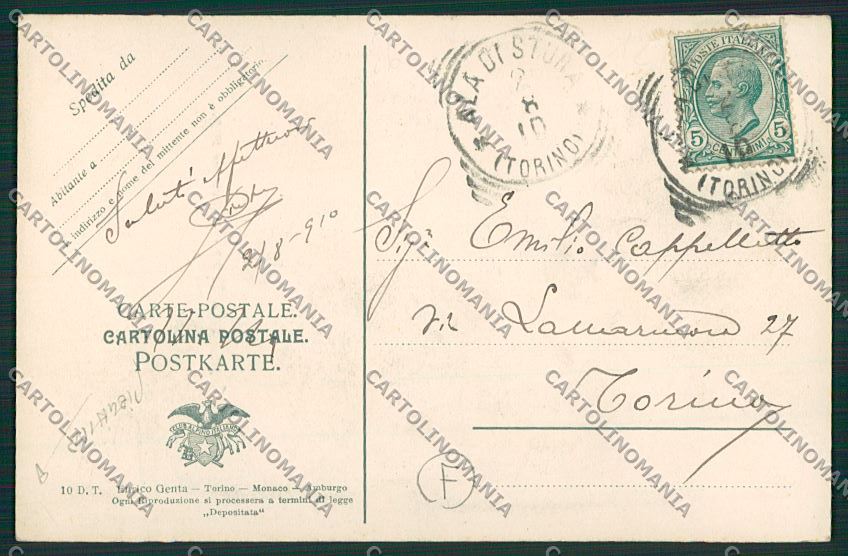 Spedita da
Abitante a
indirizzo e nome del mittente non è obbligatorio.
Saluti Affettuosi
2/8-910
CARTE-POSTALE.
CARTOLINA POSTALE.
POSTKARTE.
CLUB ALPINO ITALIANO
10 D. T. Enrico Genta — Torino — Monaco — Amburgo
Ogni Riproduzione si processera a termini di legge
„Depositata"
ALA DI STURA
8
10
(TORINO)
POSTE ITALIANE
5 5
CENTESIMI
(TORINO)
Sigr Emilio Cappelletto
via Lamarmora 27
Torino
F
CARTOLINOMANIA